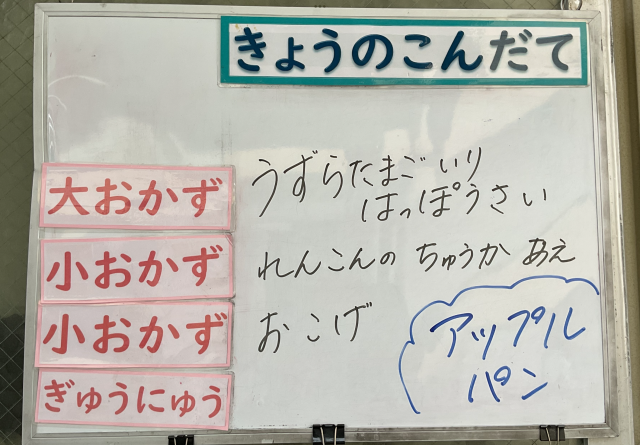 きょうのこんだて
大おかず うずらたまごいり
はっぽうさい
小おかず れんこんの ちゅうか あえ
小おかず おこげ
アップル
パン
ぎゅうにゅう